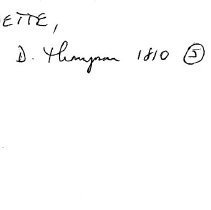 ETTE,
D. Thompson 1810 ⑤